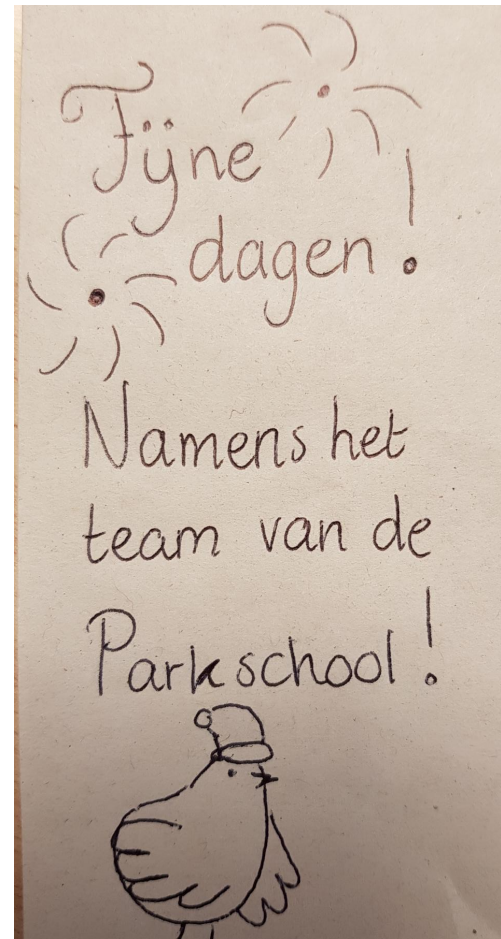 Fijne
dagen!
Namens het
team van de
Parkschool!